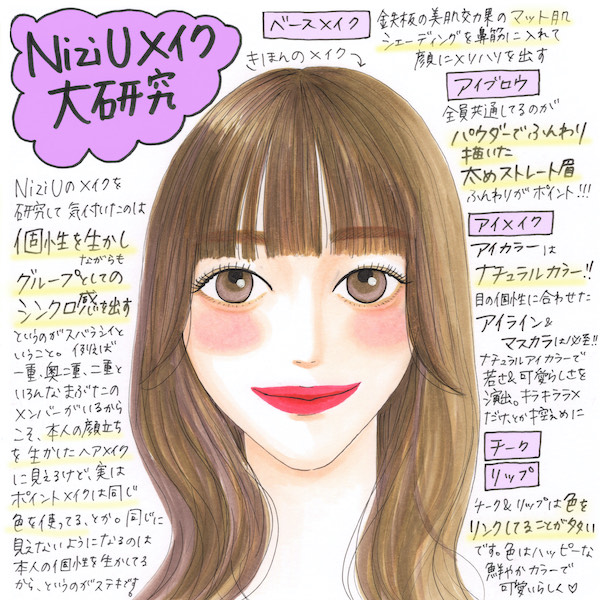 NiziUメイク
大研究
NiziUのメイクを
研究して気付いたのは
個性を生かし
ながらも
グループとしての
シンクロ感を出す
というのがスバラシイと
いうこと。例えば
一重、奥二重、二重と
いろんなまぶたの
メンバーがいるから
こそ、本人の顔立ち
を生かしたヘアメイク
に見えるけど、実は
ポイントメイクは同じ
色を使ってる、とか。同じに
見えないようになるのは
本人の個性を生かしてる
から、というのがステキです。
ベースメイク
きほんのメイク
鉄板の美肌効果のマット肌
シェーディングを鼻筋に入れて
顔にメリハリを出す
アイブロウ
全員共通してるのが
パウダーでふんわり
描いた
太めストレート眉
ふんわりがポイント!!!
アイメイク
アイカラーは
ナチュラルカラー!!
目の個性に合わせた
アイライン&
マスカラは必至!!
ナチュラルアイカラーで
若さ&可愛らしさを
演出。キラキララメ
だけど控えめに
チーク
リップ
チーク&リップは色を
リンクしてることが多い
です。色はハッピーな
鮮やかカラーで
可愛いらしく♡